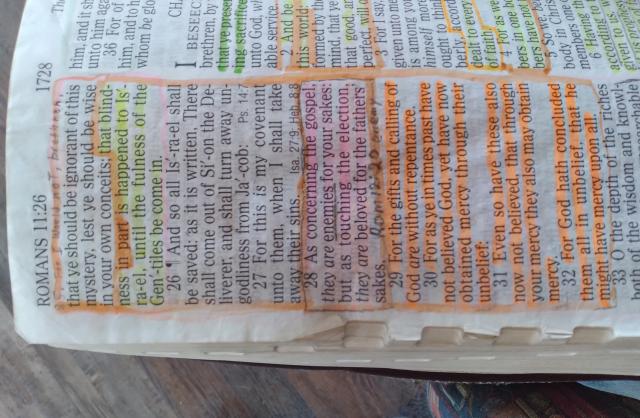 ROMANS 11:26 1728
that ye should be ignorant of this
mystery, lest ye should be wise
in your own conceits; that blind-
ness in part is happened to Is'-
ra-el, until the fulness of the
Gen-tiles be come in.
26 ¶ And so all Is'-ra-el shall
be saved: as it is written, There
shall come out of Si'-on the De-
liverer, and shall turn away un-
godliness from Ja-cob: Ps. 14-7
27 For this is my covenant
unto them, when I shall take
away their sins. Isa. 27:9 - Heb. 8:8
28 As concerning the gospel,
they are enemies for your sakes:
but as touching the election,
they are beloved for the fathers'
sakes.
29 For the gifts and calling of
God are without repentance.
30 For as ye in times past have
not believed God, yet have now
obtained mercy through their
unbelief:
31 Even so have these also
now not believed, that through
your mercy they also may obtain
mercy.
32 For God hath concluded
them all in unbelief, that he
might have mercy upon all.
33 O the depth of the riches
both of the wisdom and knowl-
him, and it sh
unto him again
36 For of
him, and to h
whom be glo
CHA
I BESEECH
brethren, by t
that ye presen
ing sacrifice
unto God, wh
able service.
2 And be
this world:
formed by the
mind, that ye
that good, an
perfect, will o
3 For I say,
given unto me
is among you
himself more
ought to thi
berly, accord
dealt to every
of faith.
bers in one bo
bers have no
5 So we
body in Chris
members
6 Having